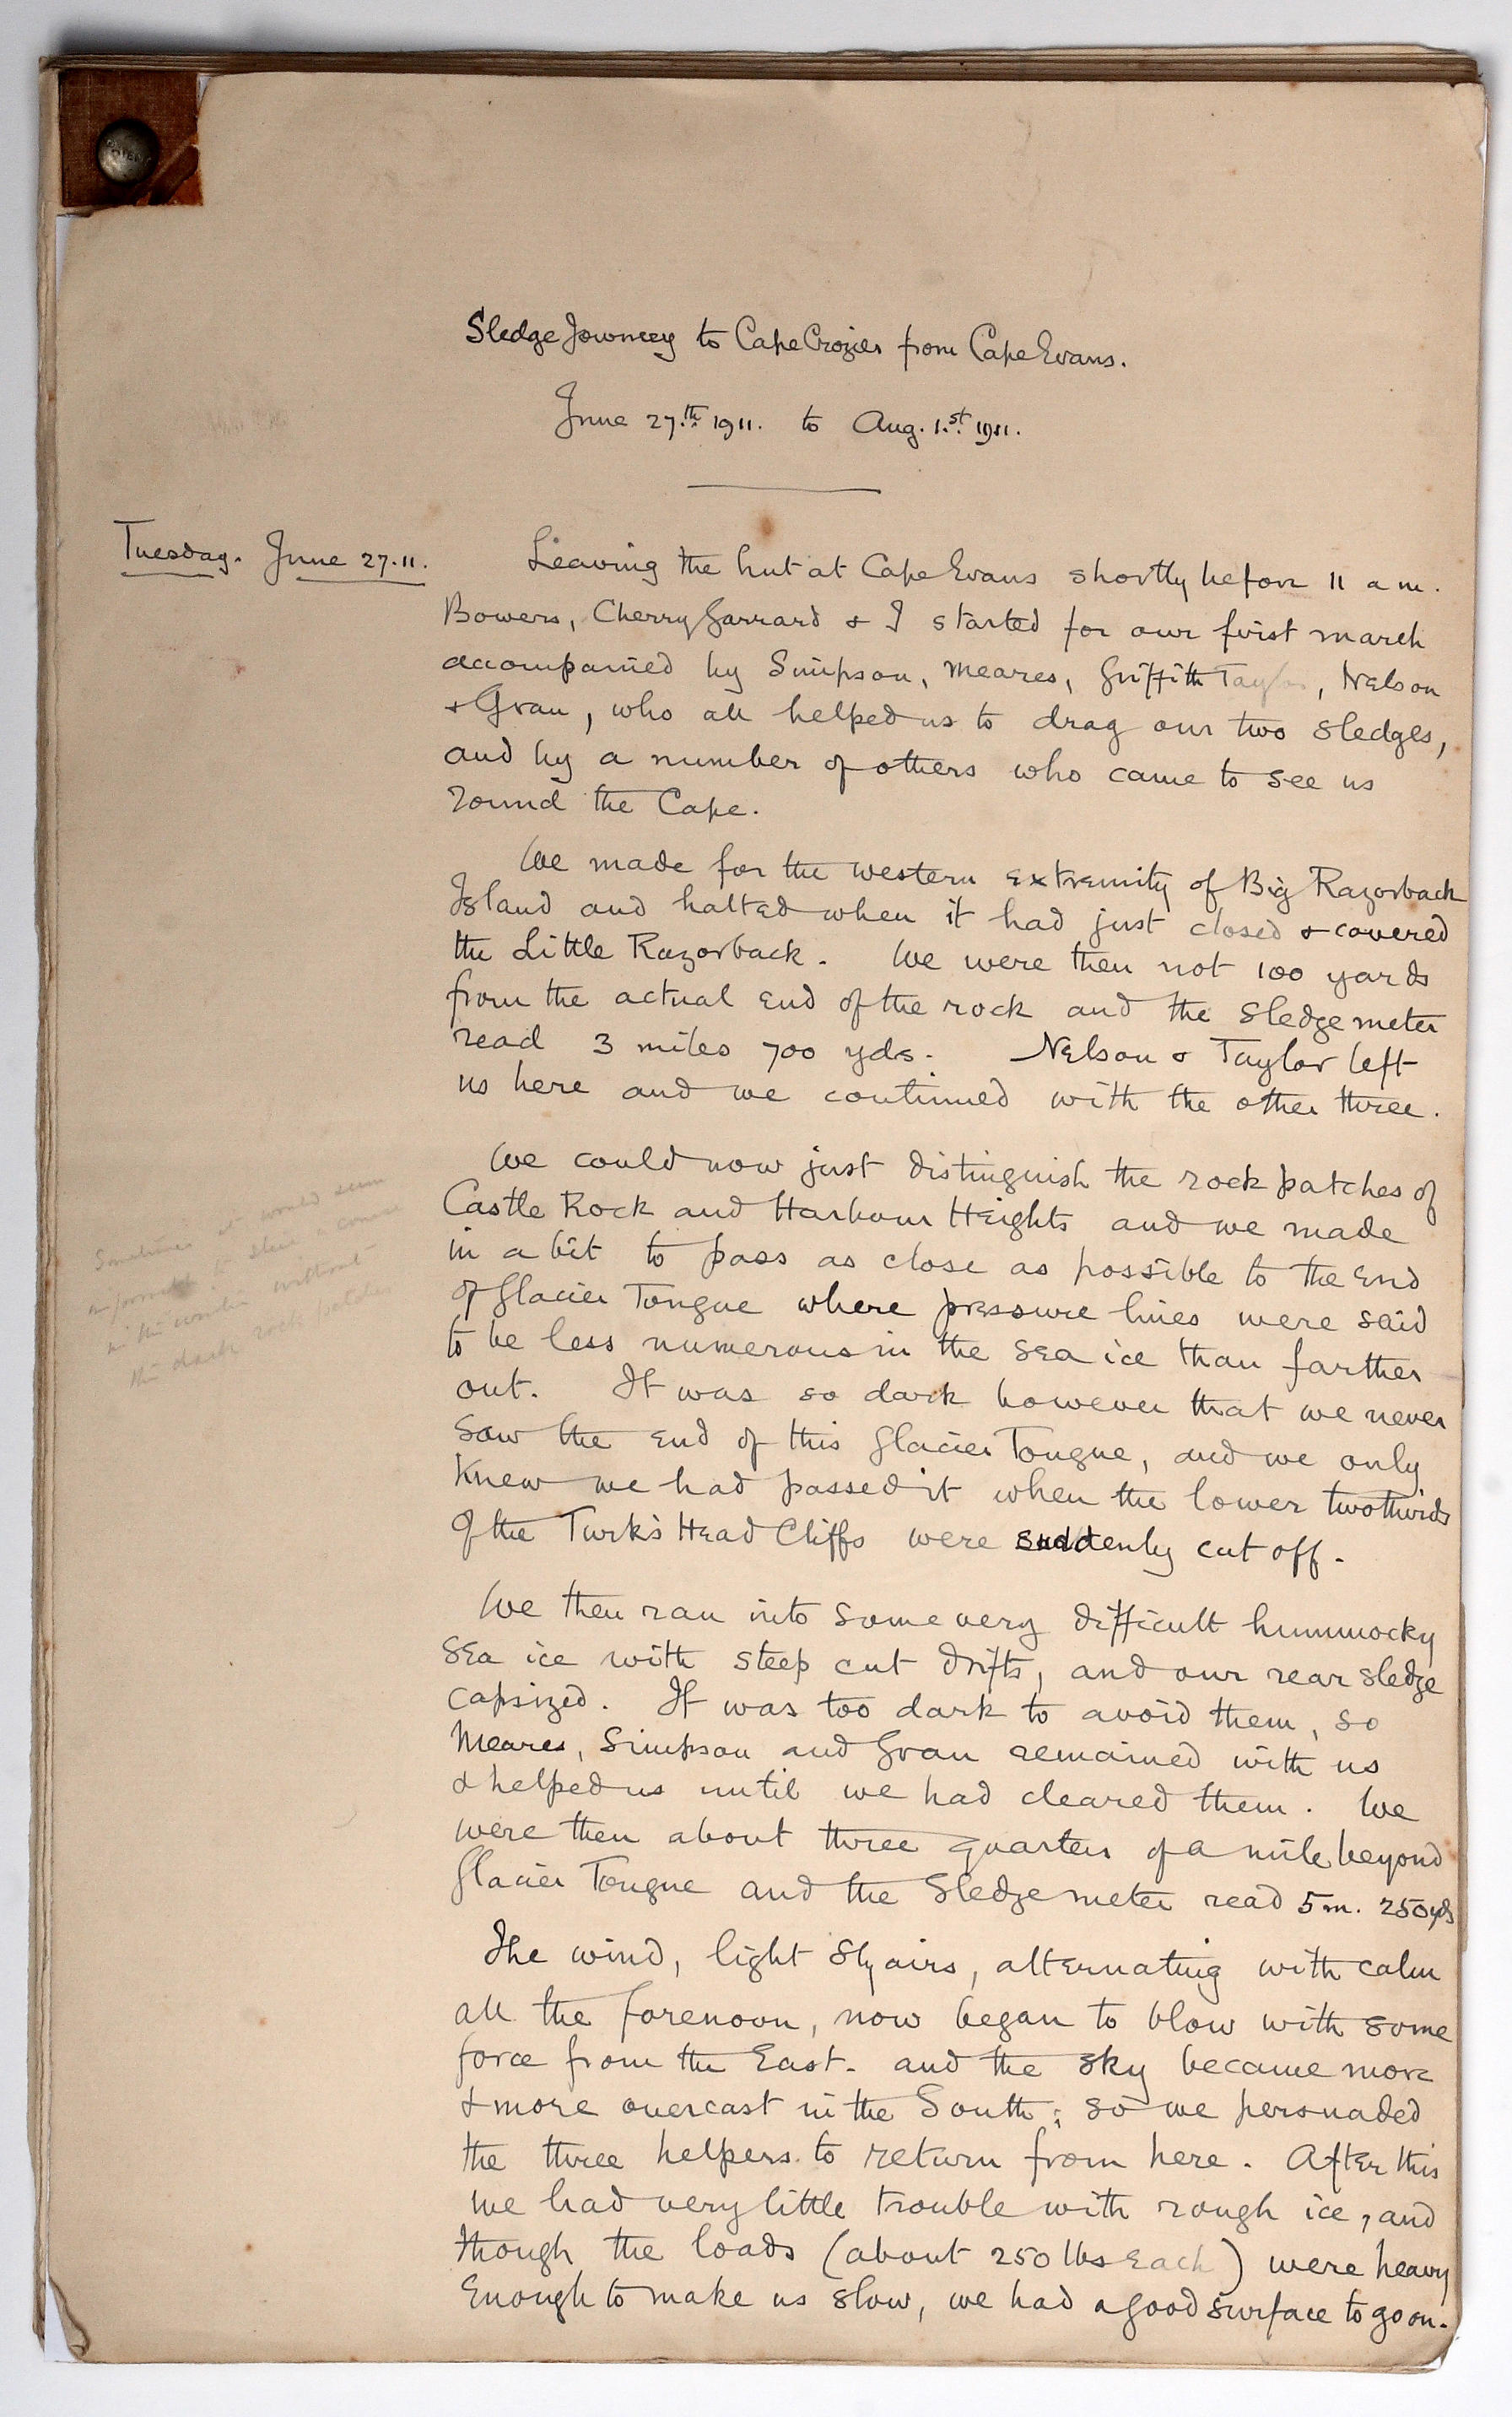 Sledge Journey to Cape Crozier from Cape Evans.
June 27.th 1911. to Aug. 1.st 1911.
Tuesday. June 27.11.
Leaving the hut at Cape Evans shortly before 11 a m.
Bowers, Cherry Garrard & I started for our first march
accompanied by Simpson, Meares, Griffith Taylor, Nelson
& Gran, who all helped us to drag our two sledges,
and by a number of others who came to see us
round the Cape.
We made for the western extremity of Big Razorback
Island and halted when it had just closed & covered
the Little Razorback. We were then not 100 yards
from the actual end of the rock and the sledge meter
read 3 miles 700 yds. Nelson & Taylor left
us here and we continued with the other three.
We could now just distinguish the rock patches of
Castle Rock and Harbour Heights and we made
in a bit to pass as close as possible to the end
of Glacier Tongue where pressure lines were said
to be less numerous in the sea ice than farther
out. It was so dark however that we never
saw the end of this Glacier Tongue, and we only
knew we had passed it when the lower two thirds
of the Turk's Head Cliffs were suddenly cut off.
Sometimes it would seem
impossible to steer course
in the winter without
the dark rock patches
We then ran into some very difficult hummocky
sea ice with steep cut drifts, and our rear sledge
capsized. It was too dark to avoid them, so
Meares, Simpson and Gran remained with us
& helped us until we had cleared them. We
were then about three quarters of a mile beyond
Glacier Tongue and the Sledge meter read 5 m. 250 yds
The wind, light Sly airs, alternating with calm
all the forenoon, now began to blow with some
force from the East. and the sky became more
& more overcast in the South; so we persuaded
the three helpers to return from here. After this
we had very little trouble with rough ice, and
though the loads (about 250 lbs each) were heavy
enough to make us slow, we had a good surface to go on.